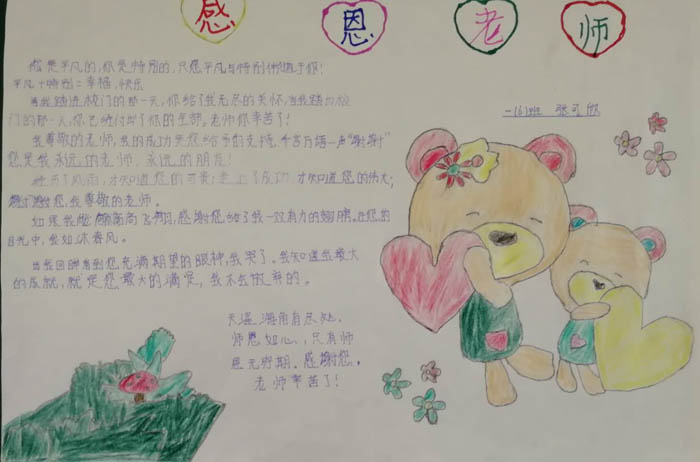 感恩老师
您是平凡的,你是特别的,只愿平凡与特别伴随于你!
平凡+特别=幸福、快乐
当我踏进校门的那一天,你给了我无尽的关怀,当我踏出校
门的那一天,你已经付出了你的全部。老师你辛苦了!
我尊敬的老师,我的成功是您给予的支持,千言万语一声“谢谢”
您是我永远的老师,永远的朋友!
经历了风雨,才知道您的可贵;走上了成功,才知道您的伟大;
谢谢您,我尊敬的老师。
如果我能高高飞翔,感谢您给了我一双有力的翅膀。在您的
目光中,我如沐春风。
当我回眸看到您充满期望的眼神,我哭了。我知道我最大
的成就,就是您最大的满足,我不会放弃的。
天涯海角有尽处,
师恩如心,只有师
恩无穷期。感谢您。
老师辛苦了!
一(6)班 张可欣